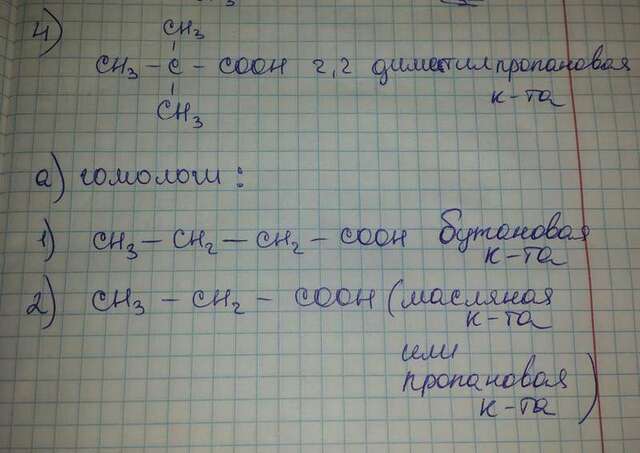 4)
CH3
CH3 – C – COOH 2,2 диметилпропановая
к-та
CH3
а) гомологи:
1) CH3 – CH2 – CH2 – COOH бутановая
к-та
2) CH3 – CH2 – COOH (масляная
к-та
или
пропановая
к-та)